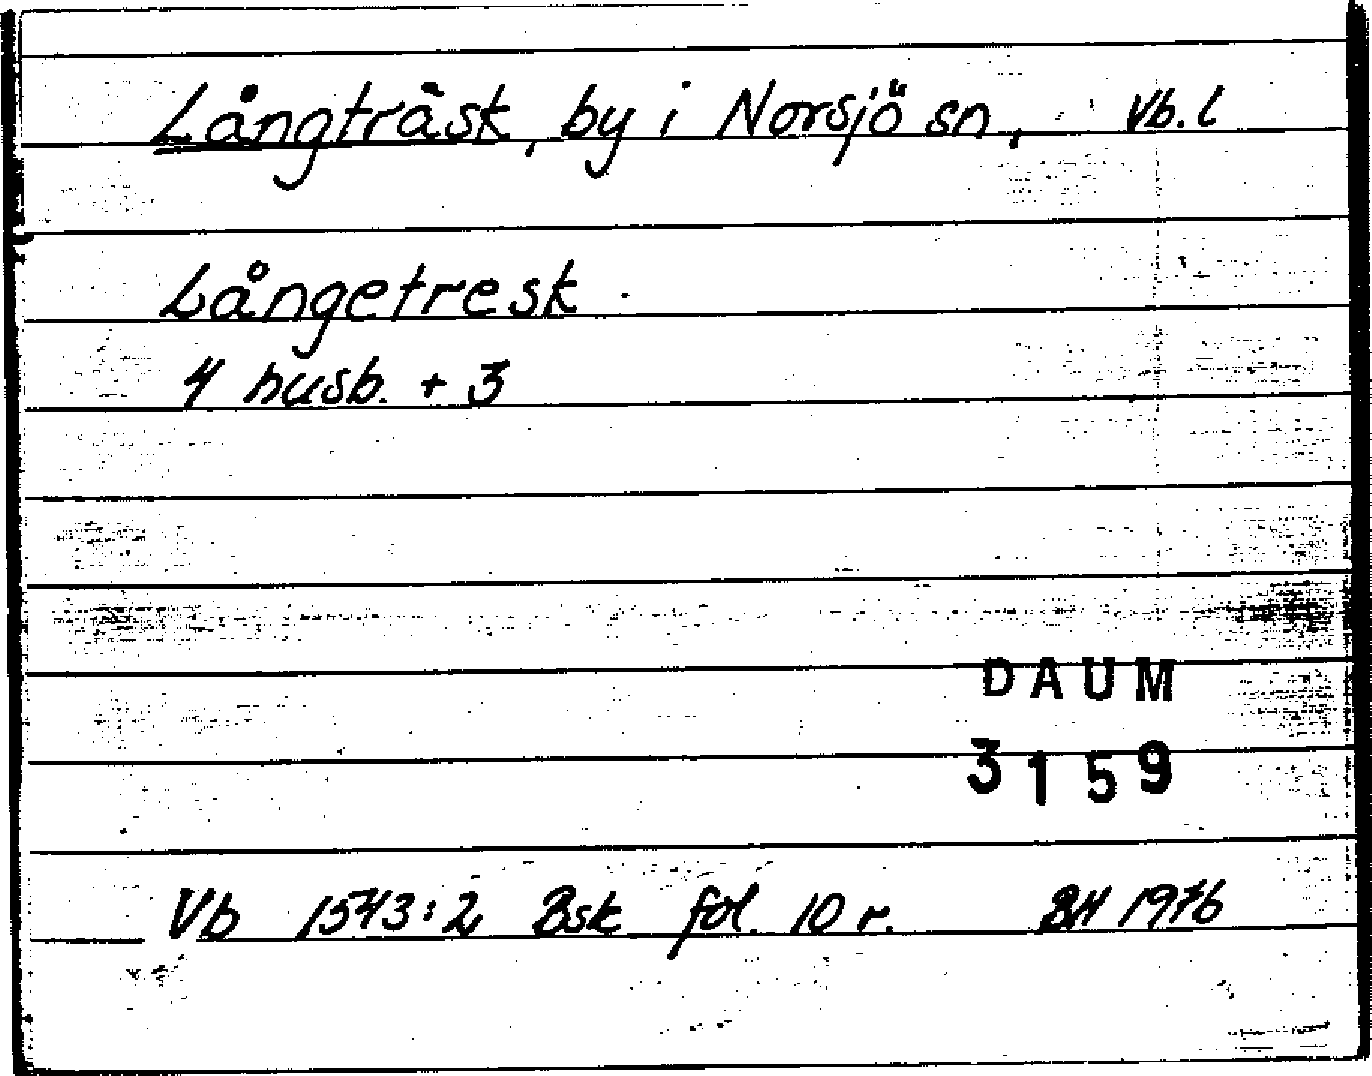 Långträsk, by i Norsjö sn, Vb. l
Långetresk
4 husb. + 3
DAUM
3159
Vb 1543:2 Bsk fol. 10 r. BH 1976